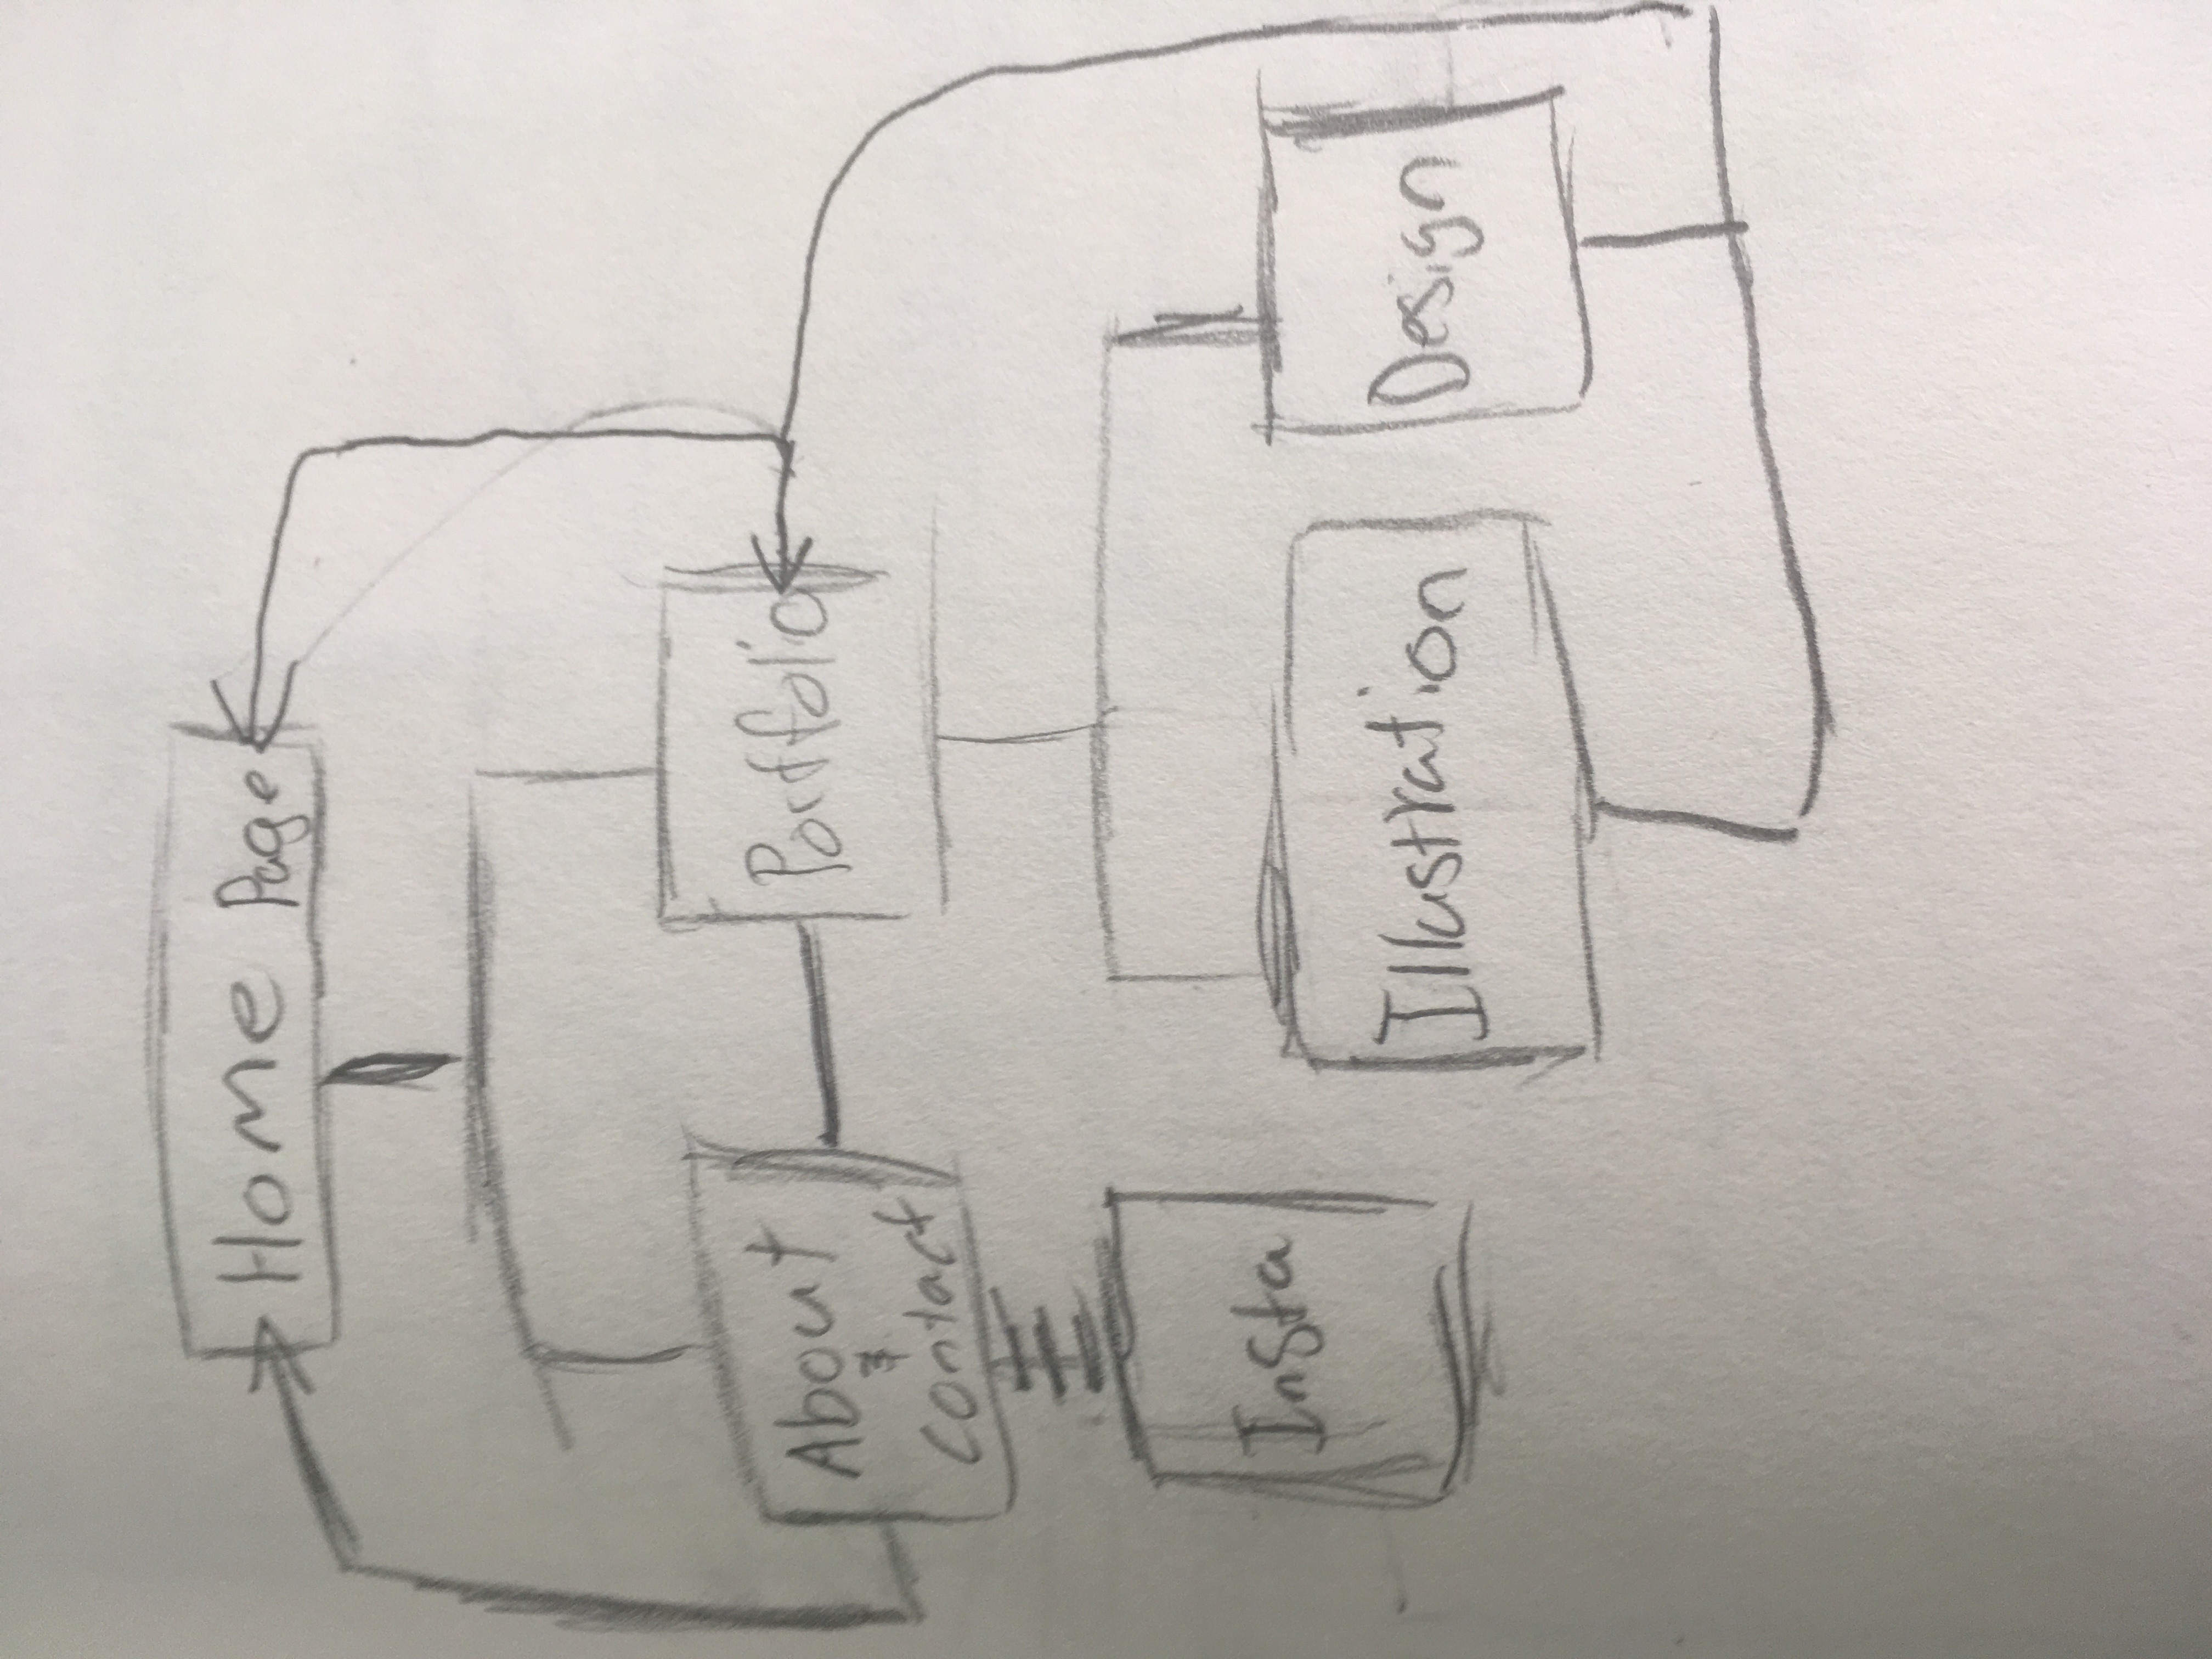 Home Page
About
&
Contact
Portfolio
Insta
Illustration
Design